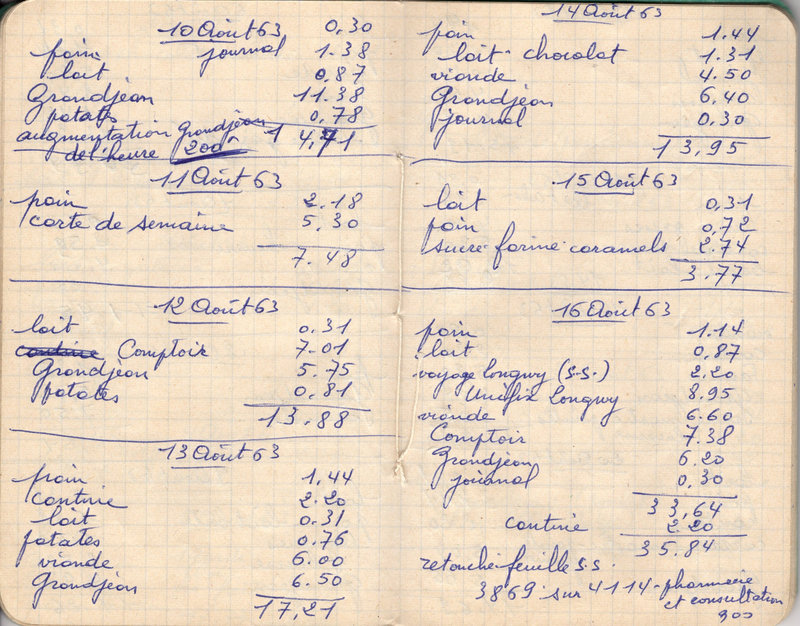 10 Août 63 0,30
pain journal 1.38
lait 0,87
Grandjean 11.38
patates 0,78
augmentation Grandjean 14,71
de l'heure 200
11 Août 63
pain 2.18
carte de semaine 5.30
7.48
12 Août 63
lait 0.31
Comptoir 7.01
Grandjean 5.75
patates 0,81
13.88
13 Août 63
pain 1,44
cantine 2.20
lait 0.31
patates 0.76
viande 6.00
Grandjean 6.50
17,21
14 Août 63
pain 1.44
lait - chocolat 1.31
viande 4.50
Grandjean 6,40
journal 0.30
13,95
15 Août 63
lait 0,31
pain 0,72
sucre farine caramels 2.74
3.77
16 Août 63
pain 1.14
lait 0,87
voyage Longwy (S.S.) 2.20
Unifix Longwy 8.95
viande 6.60
Comptoir 7.38
Grandjean 6.20
journal 0,30
33,64
cantine 2.20
35.84
retouche feuille S.S.
3869 sur 4114 - pharmacie
et consultation